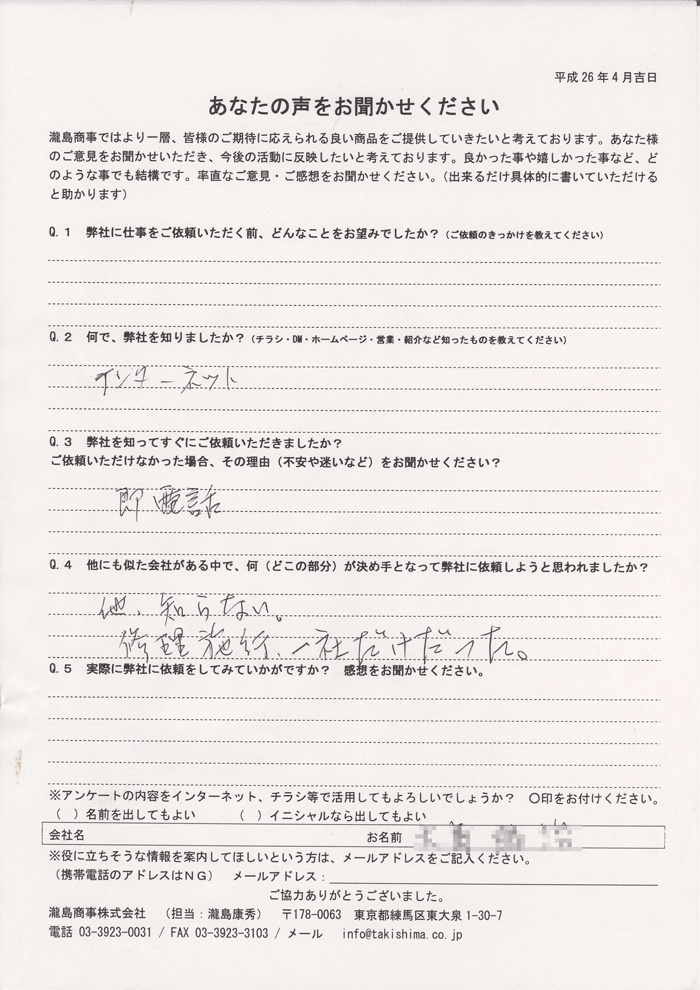 平成26年4月吉日
あなたの声をお聞かせください
瀧島商事ではより一層、皆様のご期待に応えられる良い商品をご提供していきたいと考えております。あなた様
のご意見をお聞かせいただき、今後の活動に反映したいと考えております。良かった事や嬉しかった事など、ど
のような事でも結構です。率直なご意見・ご感想をお聞かせください。（出来るだけ具体的に書いていただける
と助かります）
Q.1 弊社に仕事をご依頼いただく前、どんなことをお望みでしたか？（ご依頼のきっかけを教えてください）
Q.2 何で、弊社を知りましたか？（チラシ・DM・ホームページ・営業・紹介など知ったものを教えてください）
インターネット
Q.3 弊社を知ってすぐにご依頼いただきましたか？
ご依頼いただけなかった場合、その理由（不安や迷いなど）をお聞かせください？
即電話
Q.4 他にも似た会社がある中で、何（どこの部分）が決め手となって弊社に依頼しようと思われましたか？
他、知らない。
修理施行、一社だけだった。
Q.5 実際に弊社に依頼をしてみていかがですか？ 感想をお聞かせください。
※アンケートの内容をインターネット、チラシ等で活用してもよろしいでしょうか？ ○印をお付けください。
（ ）名前を出してもよい （ ）イニシャルなら出してもよい
会社名 お名前
※役に立ちそうな情報を案内してほしいという方は、メールアドレスをご記入ください。
（携帯電話のアドレスはNG） メールアドレス：
ご協力ありがとうございました。
瀧島商事株式会社 （担当：瀧島康秀） 〒178-0063 東京都練馬区東大泉1-30-7
電話 03-3923-0031 / FAX 03-3923-3103 / メール info@takishima.co.jp